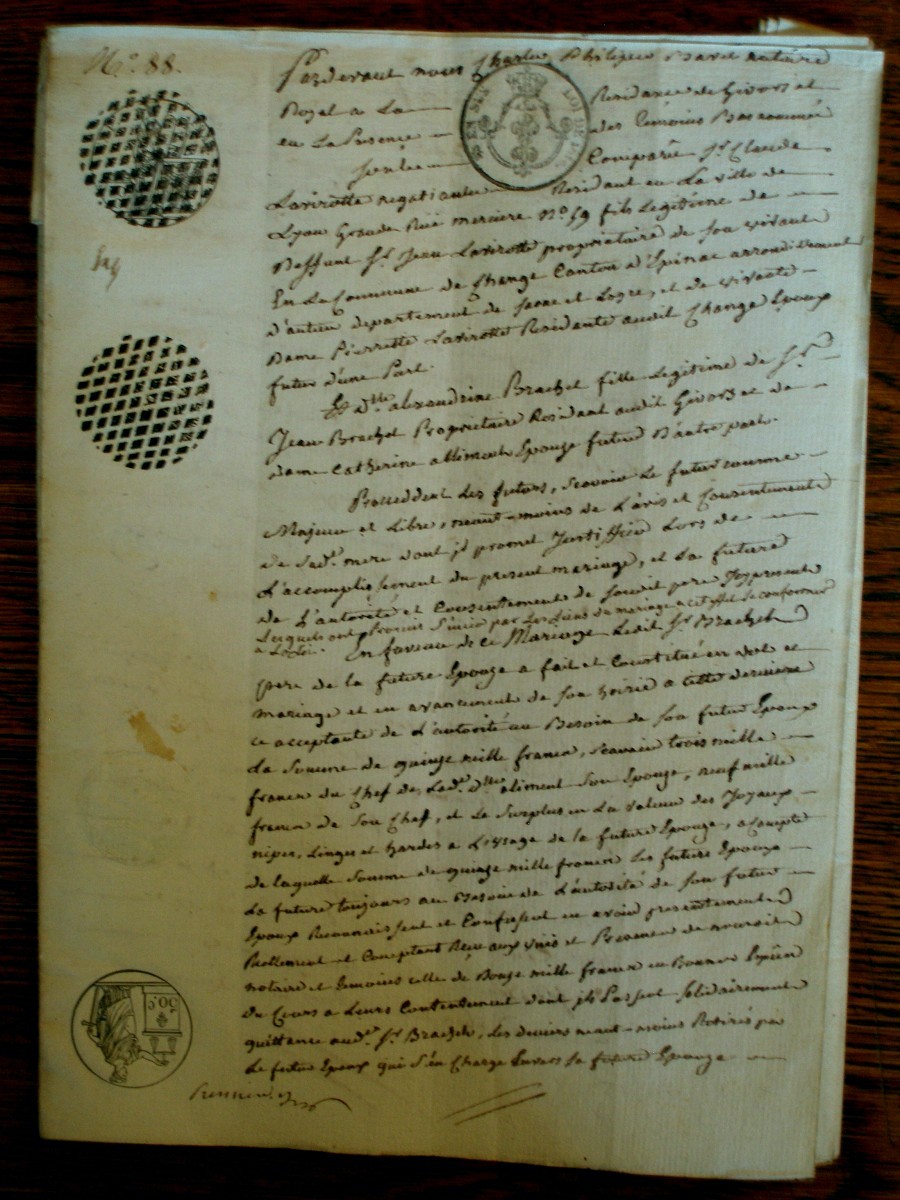 N.º 88.
Pardevant nous Charles Philipeux Baret notaire
Royal a La Residance de Givors et
en La Presence des témoins Bas nommés
Comparu Sr. Claude
Lavirotte negotiant Residant en La ville de
Lyon Grande Rüe merciere Nº 59 fils Legitime de
Deffunt Sr. Jean Lavirotte propriétaire de son vivant
En La Commune de Change Canton d'Epinac arrondissement
d'autun departement de Saone et Loire, et de vivante
Dame Pierrette Lavirotte Residante audit Change Epoux
futur d'une Part.
Et dlle. alexandrine Brachet fille Legitime de Sr.
Jean Brachet Propriétaire Residant audit Givors et de
dame Catherine allimant Epouze future D'autre part.
Proceddent Les futurs, Scavoir Le futur comme
Majeur et Libre, neant-moins de L'avis et Consentement
de Sade. mere dont il promet Justiffier Lors de
L'accomplissement du present mariage, et La future
de L'autorité et Consentement de Sondit pere Icy present
Lesquels ont promis S'unir par Les Liens du mariage a cet effet Se conformer
a La Loi. En faveur de ce Mariage Ledit Sr. Brachet
pere de La future Epouze a fait et Constitué en dot et
mariage et en avancement de son hoirie a cette derniere
ce acceptante de L'autorité au Besoin de son futur Epoux
La Somme de quinze mille francs, Scavoir trois mille
francs du Chef de Lade. dlle. aliment Son Epouze, neuf mille
francs de Son Chef, et Le Surplus en La valeur des Joyaux
nipes, Linges et hardes a L'usage de la future Epouze, acompte
de laquelle Somme de quinze mille francs Les futurs Epoux
La future toujours au Besoin de L'autorité de Son futur
Epoux Reconnaissent et Confessent en avoir presentement
Reellement et Comptant Reçu aux vües et Presence de nousdit
notaire et temoins celle de Douze mille francs en Bonnes Espèces
du Cours a Leurs Contentement dont ils Passent Solidairement
quittance audt. Sr. Brachet, Les deniers neant-moins Retirés par
Le futur Epoux qui S'en Charge Envers Sa future Epouze